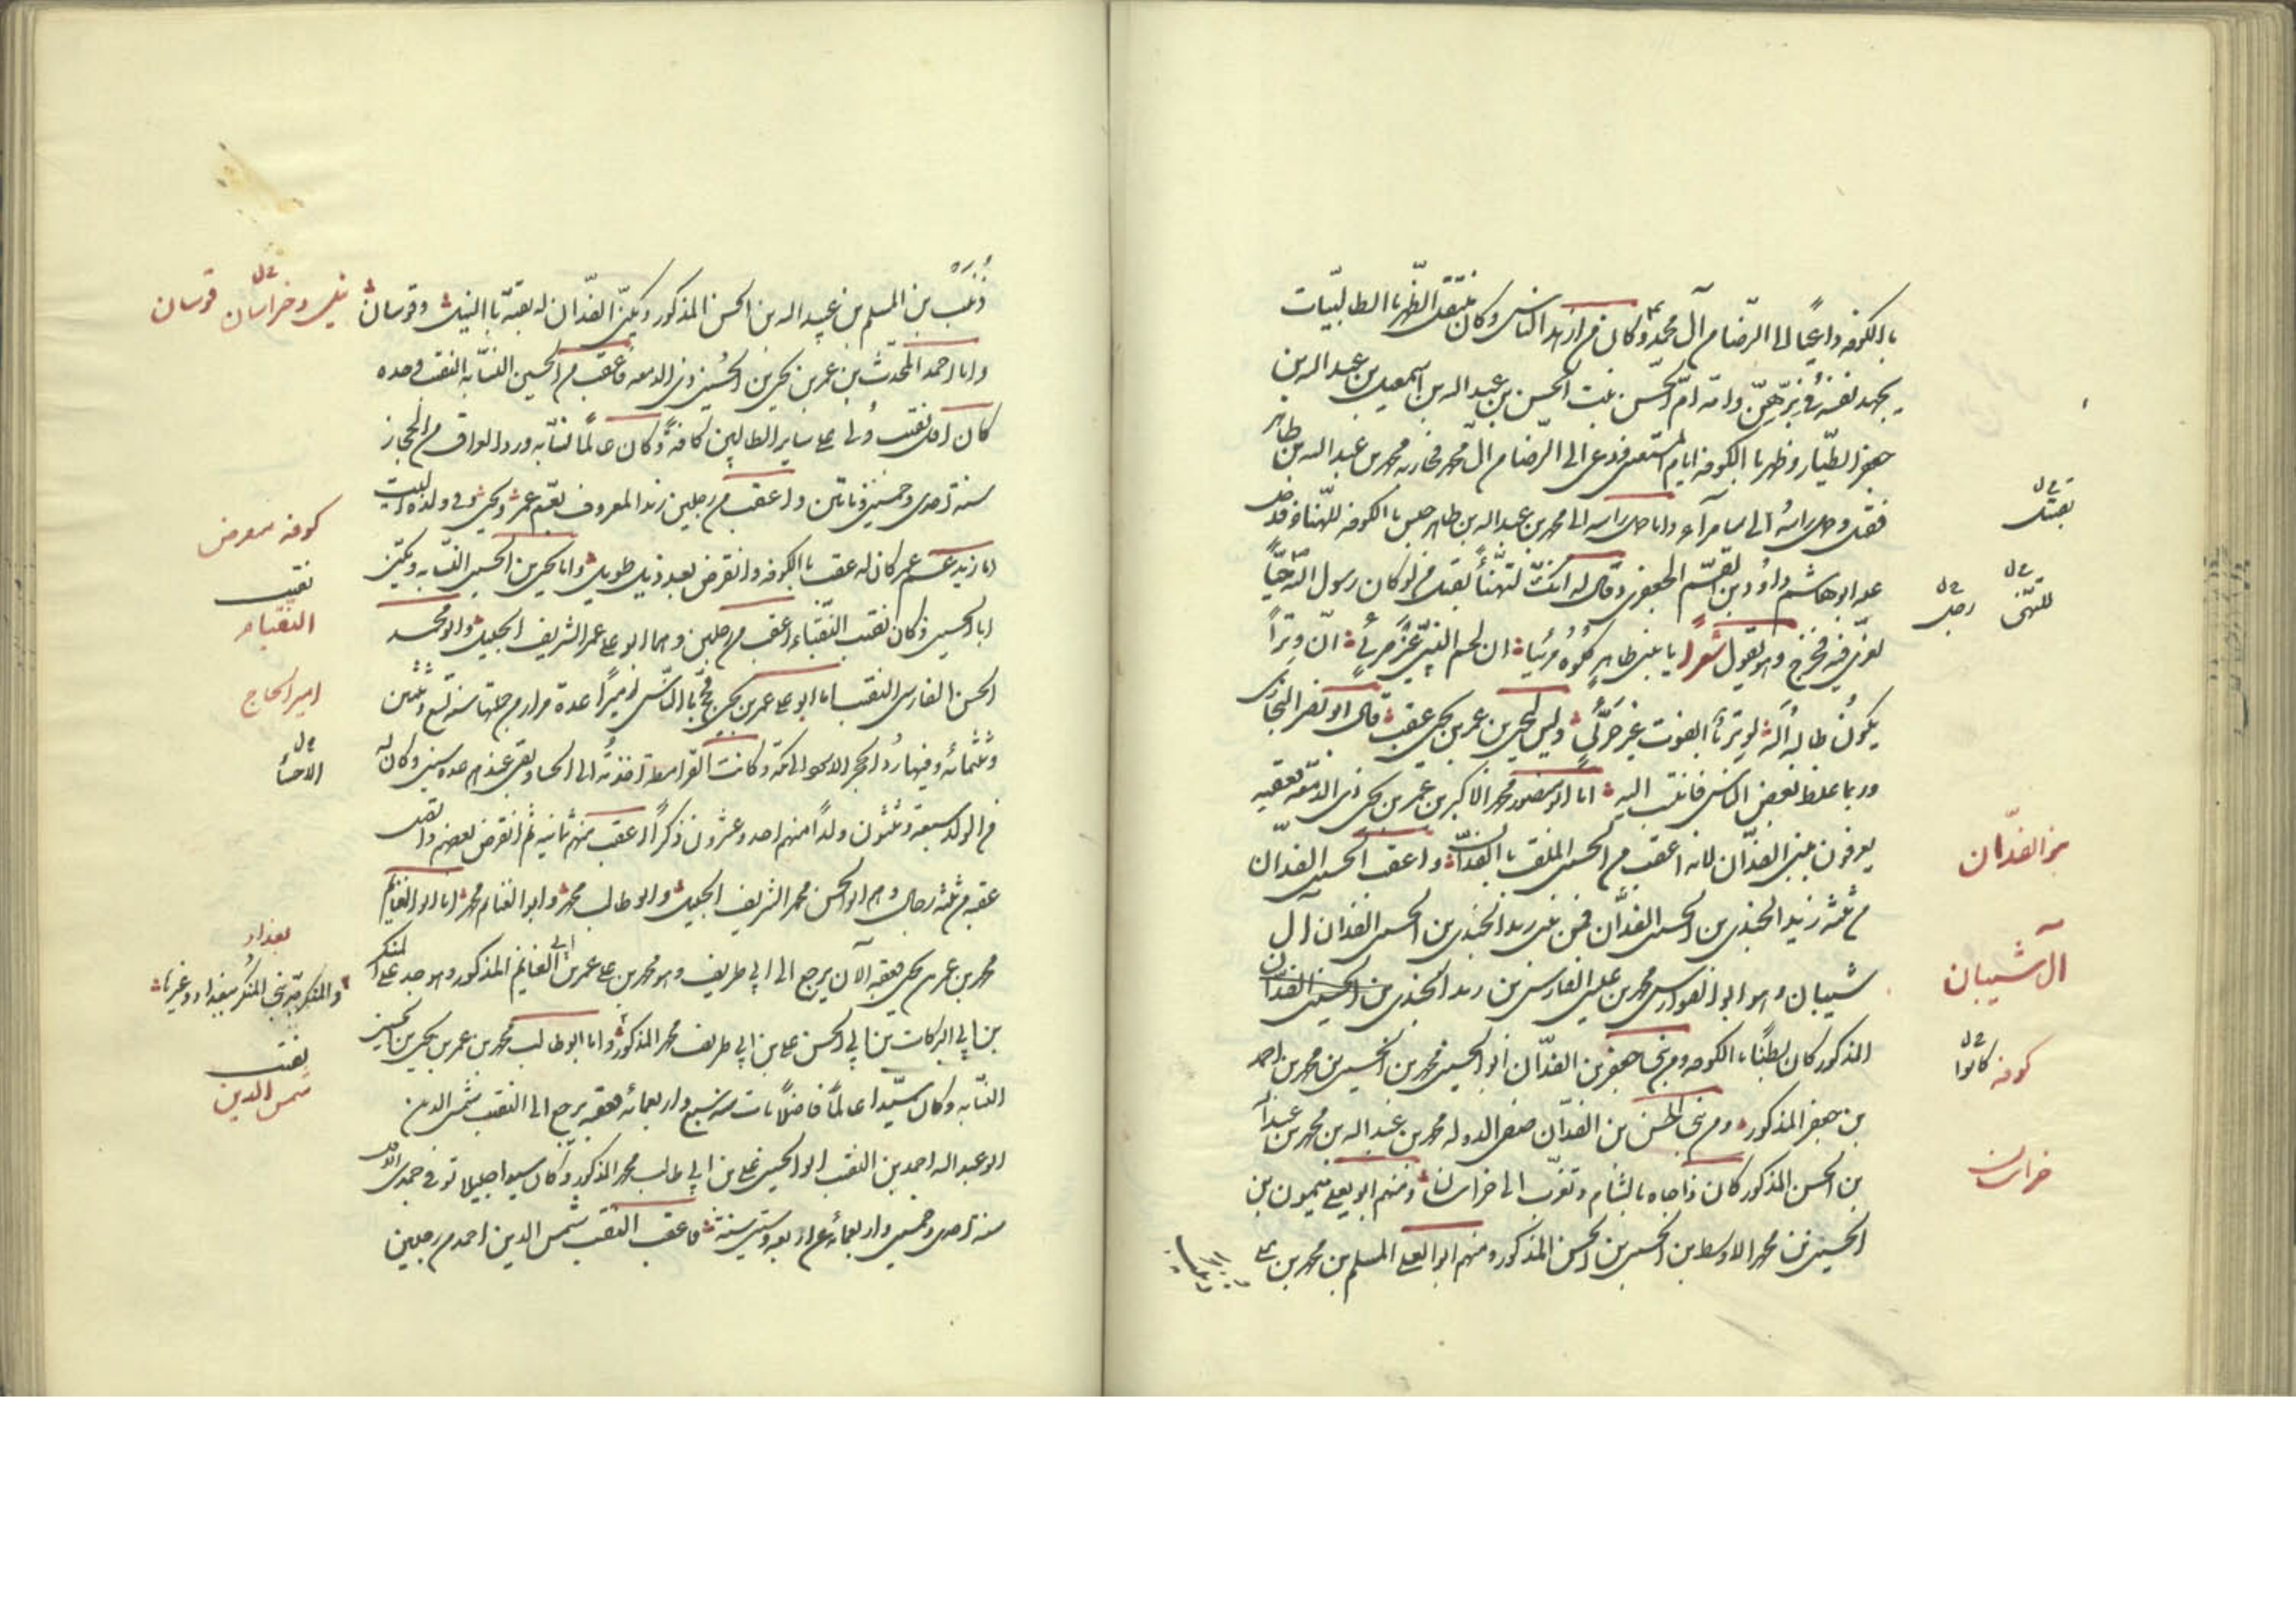 بالكوفه داعيًا الى الرّضا من آل محمد وكان من ازهد الناس وكان مثقل الظّهر بالطالبيّات
يجهد نفسه فى برّهنّ وامّه امّ الحسن بنت الحسين بن عبد الله بن اسمعيل بن عبد الله بن
جعفر الطّيار وظهر بالكوفه ايام المستعين فدعى الى الرّضا من آل محمد فحاربه محمد بن عبد الله بن طاهر
فقتل وحمل راسه الى سامرآء ولما حمل راسه الى محمد بن عبد الله بن طاهر جلس بالكوفه للهنا فدخل
عليه ابو هاشم داود بن القسم الجعفرى وقال له انّك لتهنّأ بقتل من لو كان رسول الله حيًّا
لعزّى فيه فخرج وهو يقول شعرا يا بنى طاهر كلوه مريّا ان لحم النبىّ غير مرىّ انّ وترًا
يكون طالبه الله لوتر بالفوت غير حرىّ وليس ليحيى بن عمر بن يحيى عقب قال ابو نصر البخارى
وربما غلط بعض الناس فانتسب اليه امّا ابو منصور محمد الاكبر بن عمر بن يحيى بن ذى الدمعه فعقبه
يعرفون ببنى الفدّان لانه اعقب من الحسين الملقب بالفدّان واعقب الحسين الفدّان
من ثلثه زيد الجندى بن الحسين الفدّان فمن بنى زيد الجندى بن الحسين الفدّان آل
شيبان وهو ابو الفوارس محمد بن على الفارس بن زيد الجندى بن الحسين الفدّان
المذكور كان بطنًا بالكوفه ومن بنى جعفر بن الفدّان ابو الحسين محمد بن الحسين بن محمد بن احمد
بن جعفر المذكور ومن بنى الحسن بن الفدّان صفى الدوله محمد بن عبد الله بن محمد بن عبد الله
بن الحسن المذكور كان ذا جاه بالشام وتغرّب الى خراسان ومنهم ابو يعلى ميمون بن
الحسين بن محمد الاوسط بن الحسين بن الحسن المذكور ومنهم ابو العلى المسلم بن محمد بن على
بقتل
للتهنى رجل
بنو الفدّان
آل شيبان
كوفه كانوا
خراسان
بن المسلم بن عبيد الله بن الحسن المذكور ويكنّى الفدّان له بقيّة بالنيل وقوسان
واما احمد المحدّث بن عمر بن يحيى بن الحسين ذى الدمعه فاعقب من الحسين النسّابه النقيب وحده
كان اول نقيب ولى على ساير الطالبيين كافة وكان عالمًا نسّابه ورد العراق من الحجاز
سنه احدى وخمسين ومائتين واعقب من رجلين زيد المعروف بعم عمر ويحيى فى ولده البيت
اما زيد عم عمر كان له عقب بالكوفه وانقرض بعد ذيل طويل واما يحيى بن الحسين النسّابه ويكنّى
ابا الحسين وكان نقيب النقباء اعقب من رجلين وهما ابو على عمر الشريف الجليل وابو محمد
الحسن الفارس النقيب اما ابو على عمر بن يحيى فحجّ بالنّاس اميرًا عدة مرار من جملتها سنه تسع وثلثين
وثلثمائه وفيها رُدّ الحجر الاسود الى مكّة وكانت القرامطة اخذته الى الحسا وبقى عندهم عدة سنين وكان له
من الولد سبعة وثلثون ولدًا منهم احد وعشرون ذكرًا اعقب منهم ثمانيه ثم انقرض بعضهم واتصل
عقبه من ثلثه رجال وهم ابو الحسن محمد الشريف الجليل وابو طالب محمد وابو الغنايم محمد اما ابو الغنايم
محمد بن عمر بن يحيى فعقبه الآن يرجع الى ابى طريف وهو محمد بن على عمر بن ابى الغنايم المذكور وهو جد على المنكر
بن ابى البركات بن ابى الحسن على بن ابى طريف محمد المذكور واما ابو طالب محمد بن عمر بن يحيى بن الحسين
النسّابه وكان سيّدا عالمًا فاضلًا مات سنه سبع واربعمائه فعقبه يرجع الى النقيب شمس الدين
ابو عبد الله احمد بن النقيب ابو الحسين على بن ابى طالب محمد المذكور وكان سيدا جليلا توفى جمدى الاول
سنه احدى وخمسين واربعمائه عن اربعه وستين سنه فاعقب النقيب شمس الدين احمد من رجلين
نيل وخراسان قوسان
كوفه
نقيب
النقباء
امير الحاج
الاحساء
بغداد
والمنكر جد بنى المنكر ببغداد وغيرها
نقيب
شمس الدين